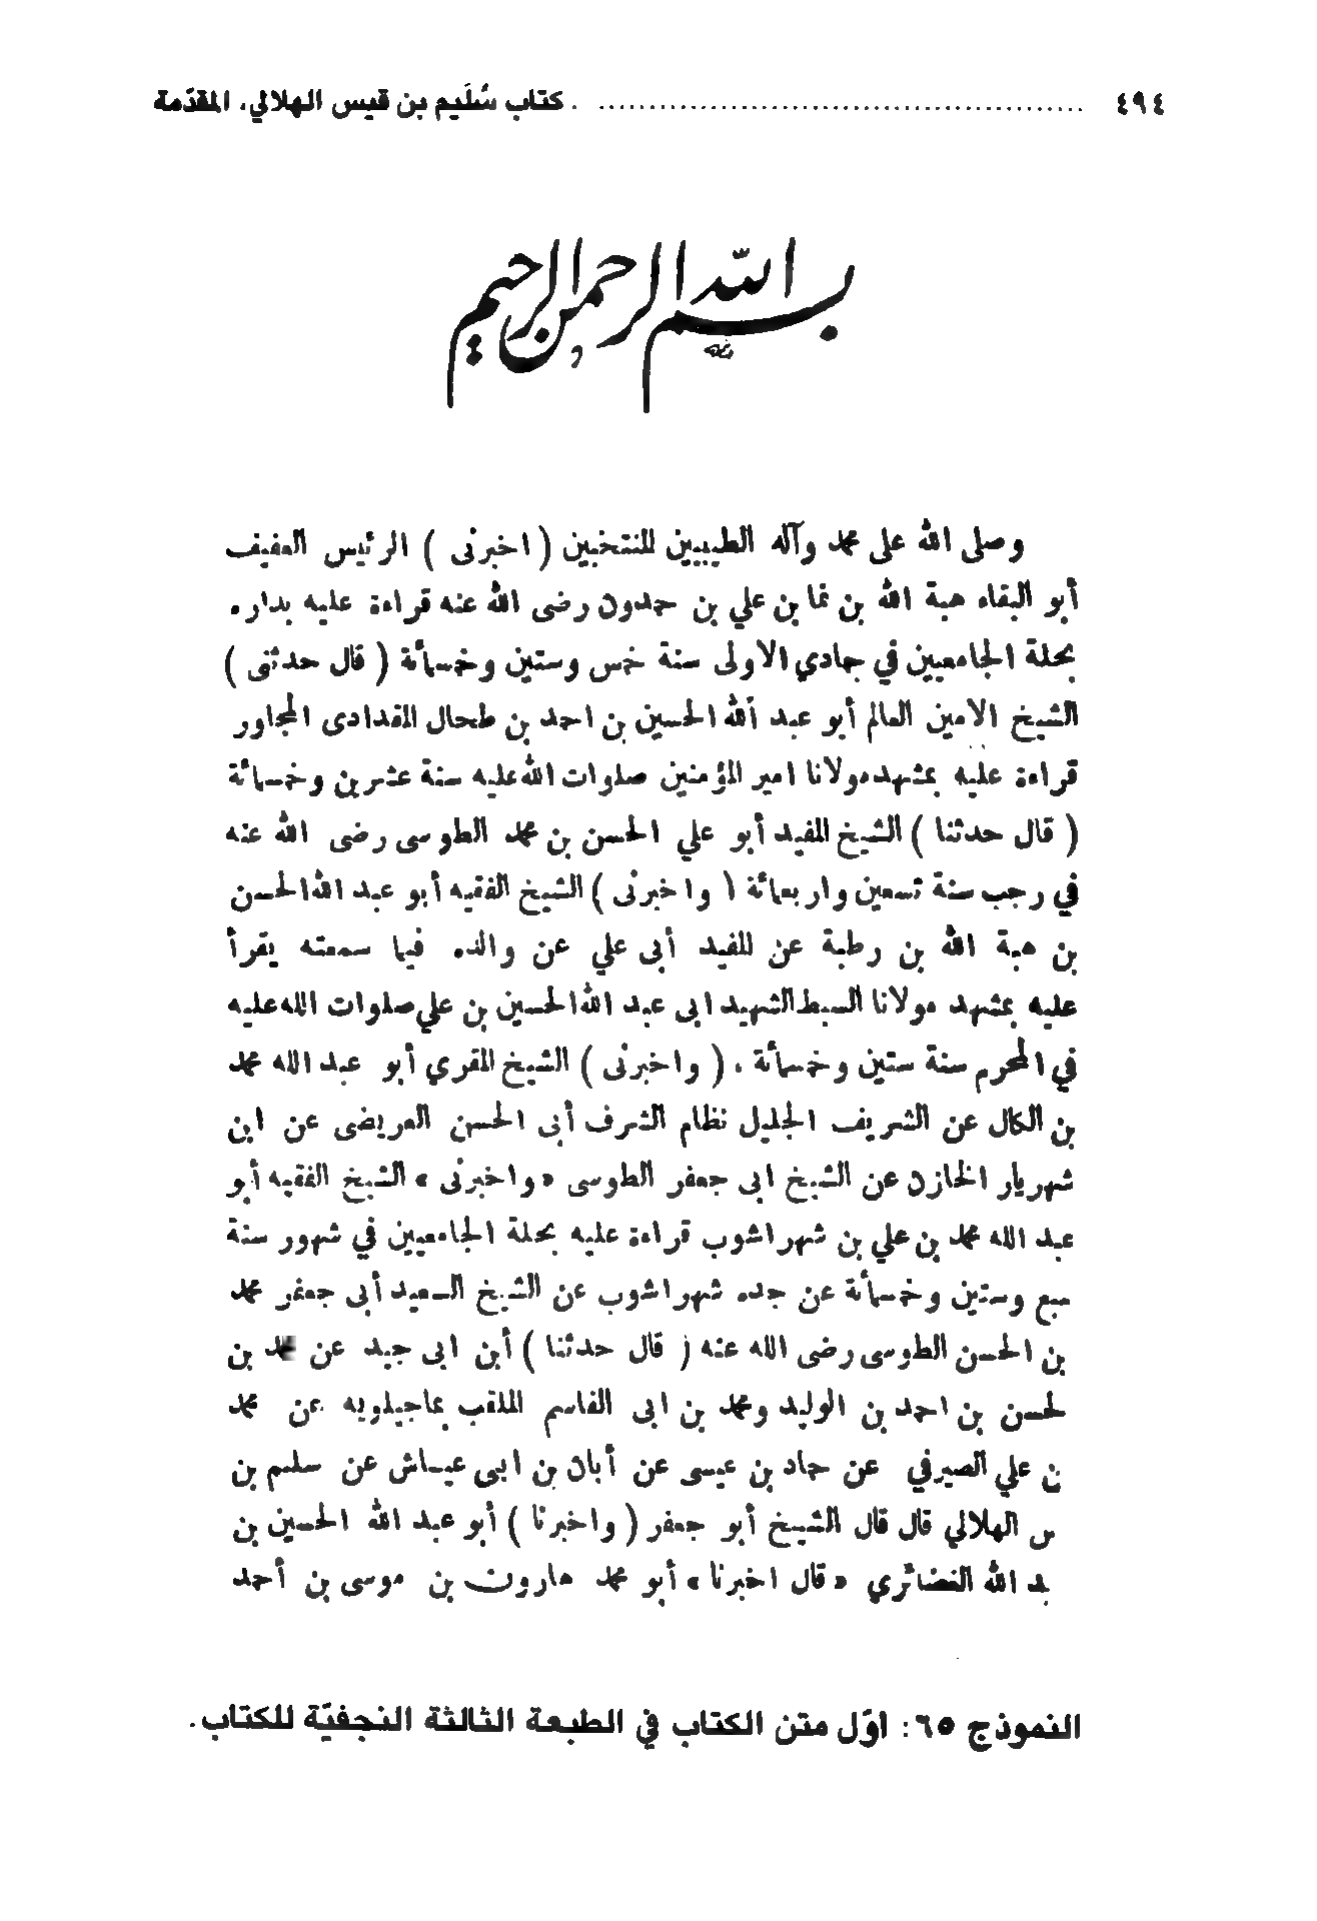 ٤٩٤ ........................................ كتاب سُلَيم بن قيس الهلالي، المقدّمة
بسم الله الرحمن الرحيم
وصلى الله على محمد وآله الطيبين المنتخبين ( اخبرنى ) الرئيس العفيف
أبو البقاء هبة الله بن نما بن علي بن حمدون رضى الله عنه قراءة عليه بداره
بحلة الجامعيين في جمادي الاولى سنة خمس وستين وخمسمأة ( قال حدثنى )
الشيخ الامين العالم أبو عبد ألله الحسين بن احمد بن طحال المقدادى المجاور
قراءة عليه بمشهد مولانا امير المؤمنين صلوات الله عليه سنة عشرين وخمسمائة
( قال حدثنا ) الشيخ المفيد أبو علي الحسن بن محمد الطوسى رضى الله عنه
في رجب سنة تسعين واربعمائة ( واخبرنى ) الشيخ الفقيه أبو عبد الله الحسن
بن هبة الله بن رطبة عن المفيد أبى علي عن والده فيما سمعته يقرأ
عليه بمشهد مولانا السبط الشهيد ابى عبد الله الحسين بن علي صلوات الله عليه
في المحرم سنة ستين وخمسمأة ، ( واخبرنى ) الشيخ المقري أبو عبد الله محمد
بن الكال عن الشريف الجليل نظام الشرف أبى الحسن العريضى عن ابن
شهريار الخازن عن الشيخ ابى جعفر الطوسى « واخبرنى » الشيخ الفقيه أبو
عبد الله محمد بن علي بن شهراشوب قراءة عليه بحلة الجامعيين في شهور سنة
سبع وستين وخمسمأة عن جده شهراشوب عن الشيخ السعيد أبى جعفر محمد
بن الحسن الطوسى رضى الله عنه ( قال حدثنا ) أبن ابى جيد عن محمد بن
لحسن بن احمد بن الوليد ومحمد بن ابى القاسم الملقب بماجيلويه عن محمد
ن علي الصيرفي عن حماد بن عيسى عن أبان بن ابى عياش عن سليم بن
س الهلالي قال قال الشيخ أبو جعفر ( واخبرنا ) أبو عبد الله الحسين بن
بد الله الغضائري « قال اخبرنا » أبو محمد هارون بن موسى بن أحمد
النموذج ٦٥: اوّل متن الكتاب في الطبعة الثالثة النجفيّة للكتاب.